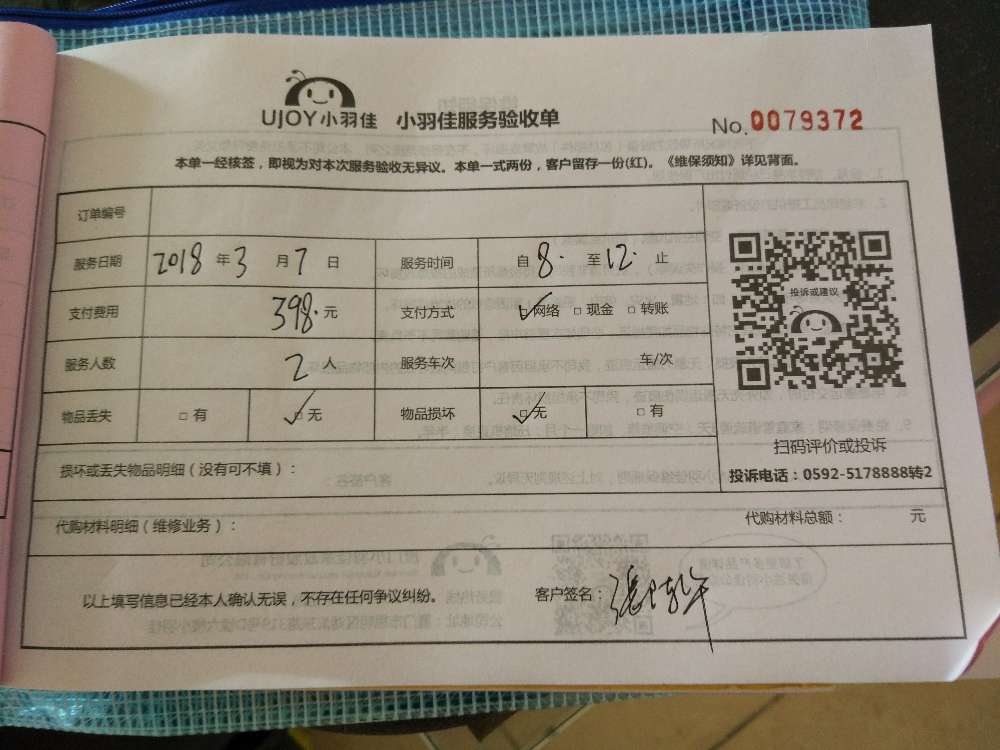 UJOY小羽佳 小羽佳服务验收单 No. 0079372
本单一经核签，即视为对本次服务验收无异议。本单一式两份，客户留存一份(红)。《维保须知》详见背面。
订单编号
服务日期 2018 年 3 月 7 日 服务时间 自 8. 至 12. 止
支付费用 398. 元 支付方式 ☑网络 □现金 □转账
投诉或建议
服务人数 2 人 服务车次 车/次
物品丢失 □有 ☑无 物品损坏 ☑无 □有
扫码评价或投诉
损坏或丢失物品明细（没有可不填）：
投诉电话：0592-5178888转2
代购材料明细（维修业务）： 代购材料总额： 元
以上填写信息已经本人确认无误，不存在任何争议纠纷。 客户签名：